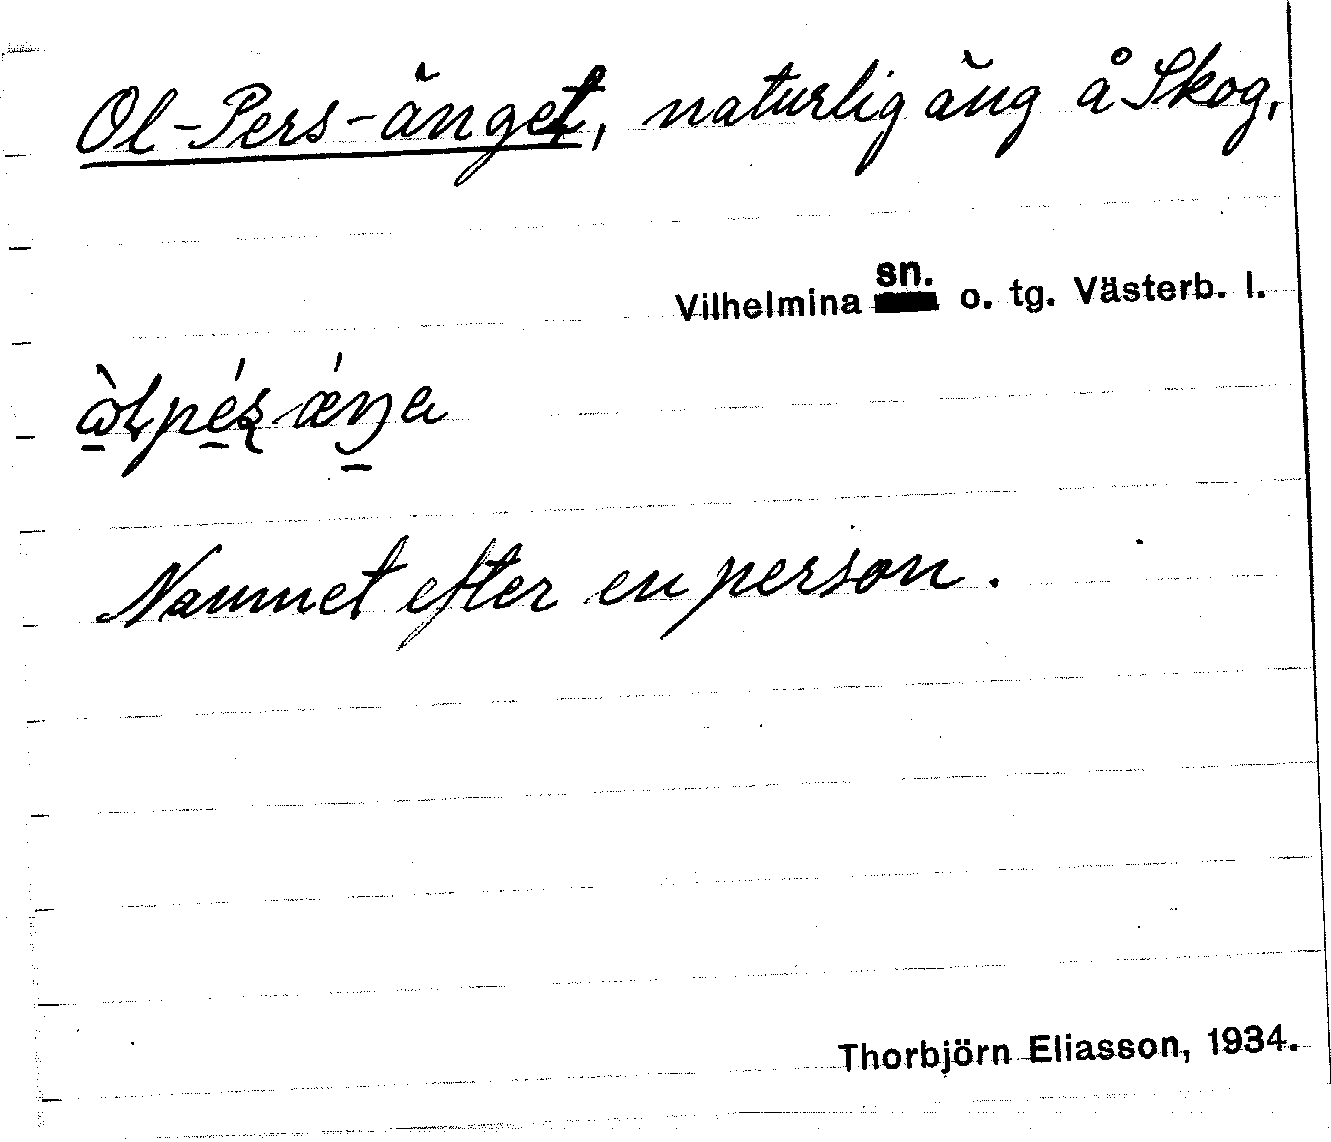 Ol-Pers-änget, naturlig äng å Skog,
Vilhelmina sn. o. tg. Västerb. l.
Namnet efter en person.
Thorbjörn Eliasson, 1934.